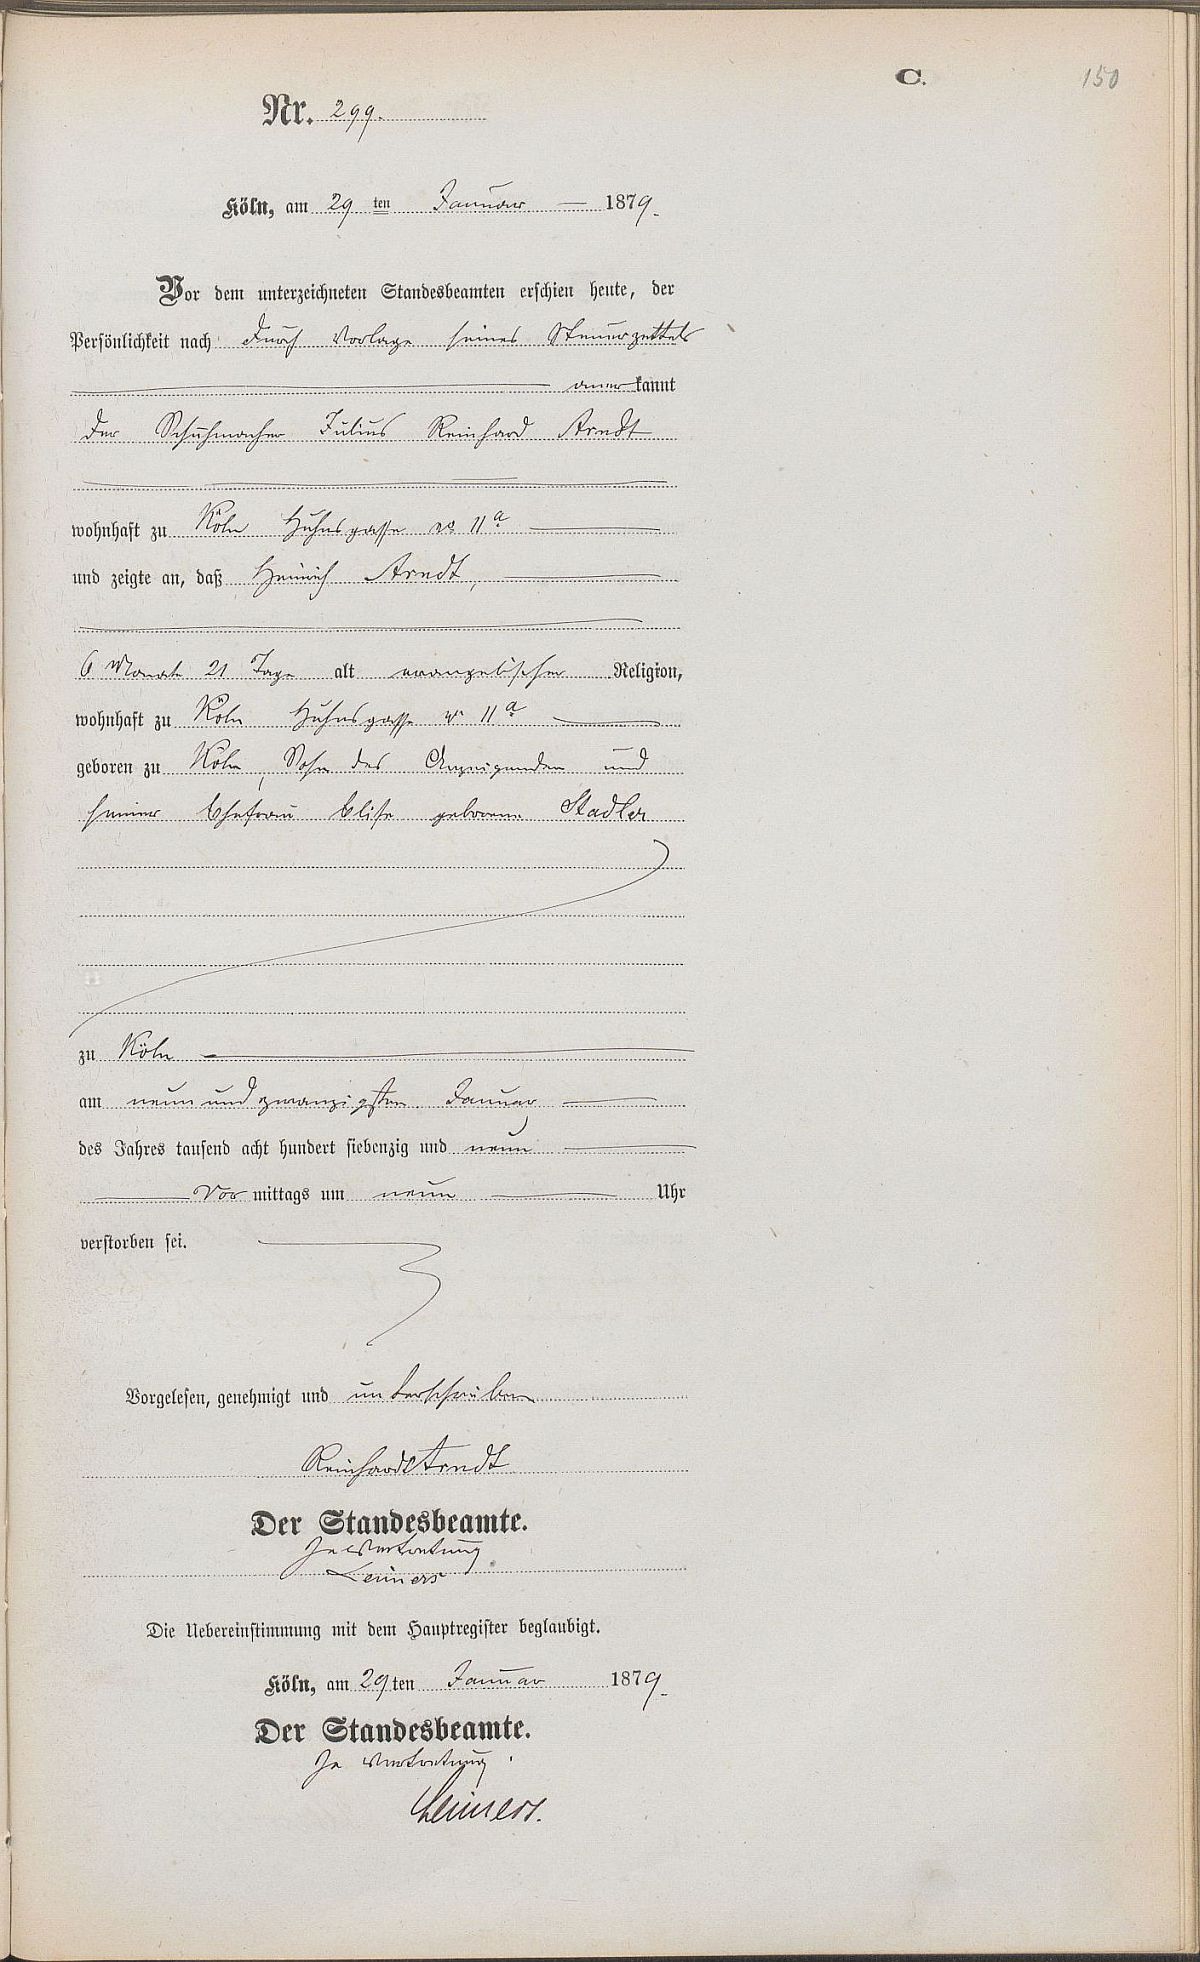 C.
150
Nr. 299.
Köln, am 29 ten Januar 1879.
Vor dem unterzeichneten Standesbeamten erschien heute, der
Persönlichkeit nach durch Vorlage seines Steuerzettels
anerkannt
der Schuhmacher Julius Reinhard Arndt
wohnhaft zu Köln Huhnsgasse No 11a
und zeigte an, daß Heinrich Arndt,
6 Monate 21 Tage alt evangelischer Religion,
wohnhaft zu Köln Huhnsgasse No 11a
geboren zu Köln, Sohn des Anzeigenden und
seiner Ehefrau Elise geborene Stadler
zu Köln
am neun und zwanzigsten Januar
des Jahres tausend acht hundert siebenzig und neun
Vor mittags um neun Uhr
verstorben sei.
Vorgelesen, genehmigt und unterschrieben
Reinhard Arndt
Der Standesbeamte.
In Vertretung
Leiners
Die Uebereinstimmung mit dem Hauptregister beglaubigt.
Köln, am 29 ten Januar 1879.
Der Standesbeamte.
In Vertretung
Leiners.